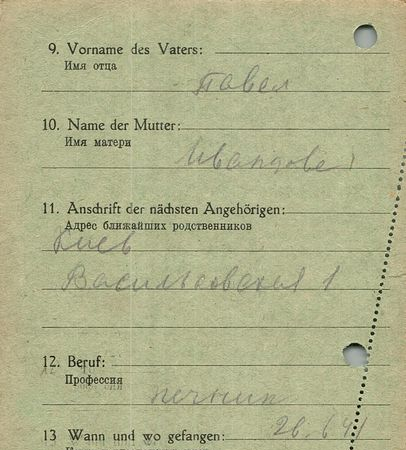 9. Vorname des Vaters:
Имя отца
Павел
10. Name der Mutter:
Имя матери
11. Anschrift der nächsten Angehörigen:
Адрес ближайших родственников
Киев
Васильковская 1
12. Beruf:
Профессия
печник
13 Wann und wo gefangen:
26.6 41